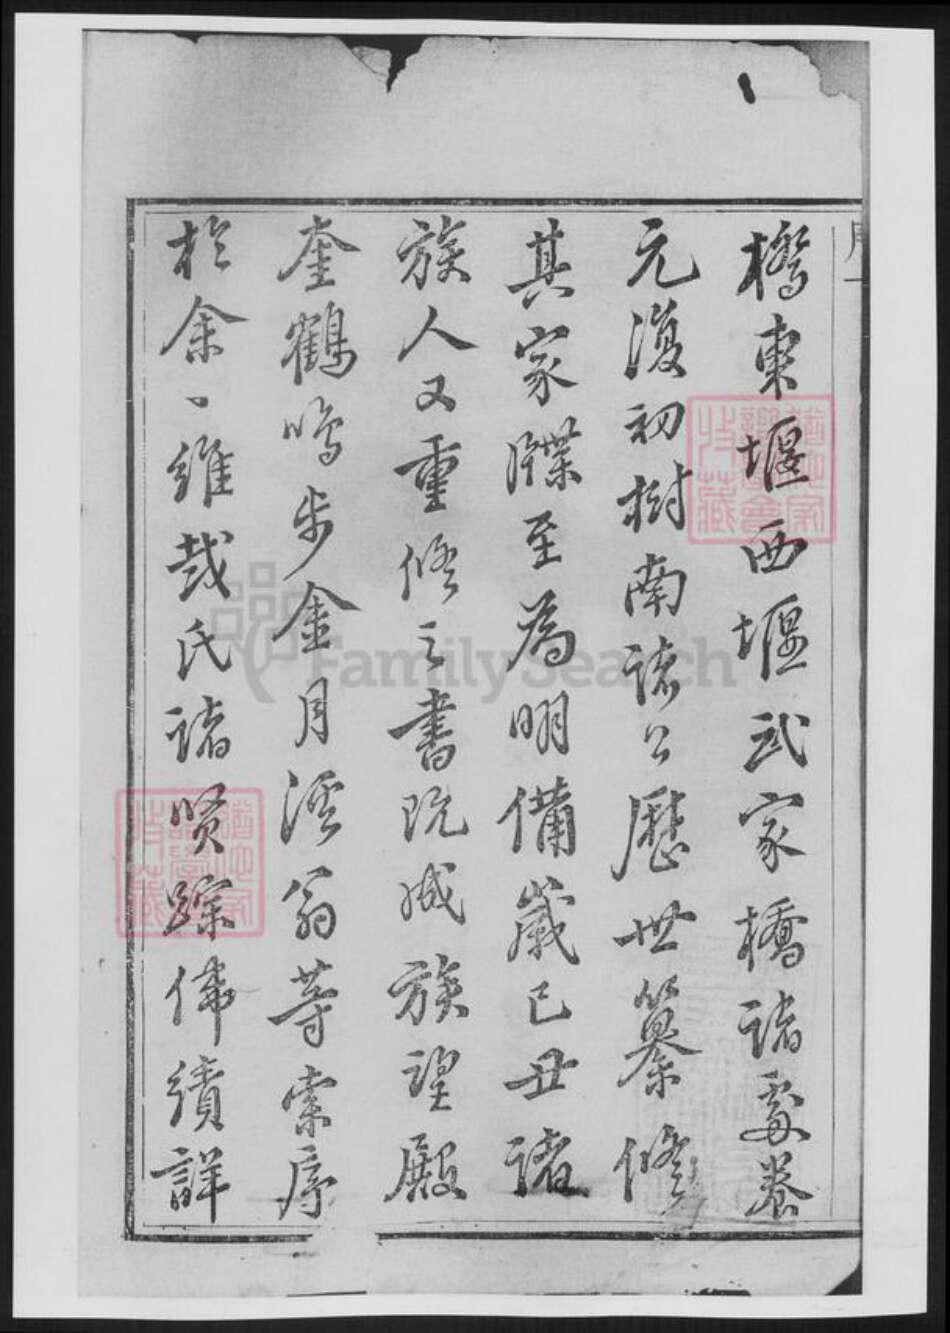 橋東堰西堰武家橋諸處養
元復初樹南諸公歷世纂修
其家牒至為明備歲己丑諸
族人又重修之書既成族望殿
奎鶴鳴步金月溪翁等索序
於余丶維哉氏諸賢踪偉績詳
序一
FamilySearch
收藏